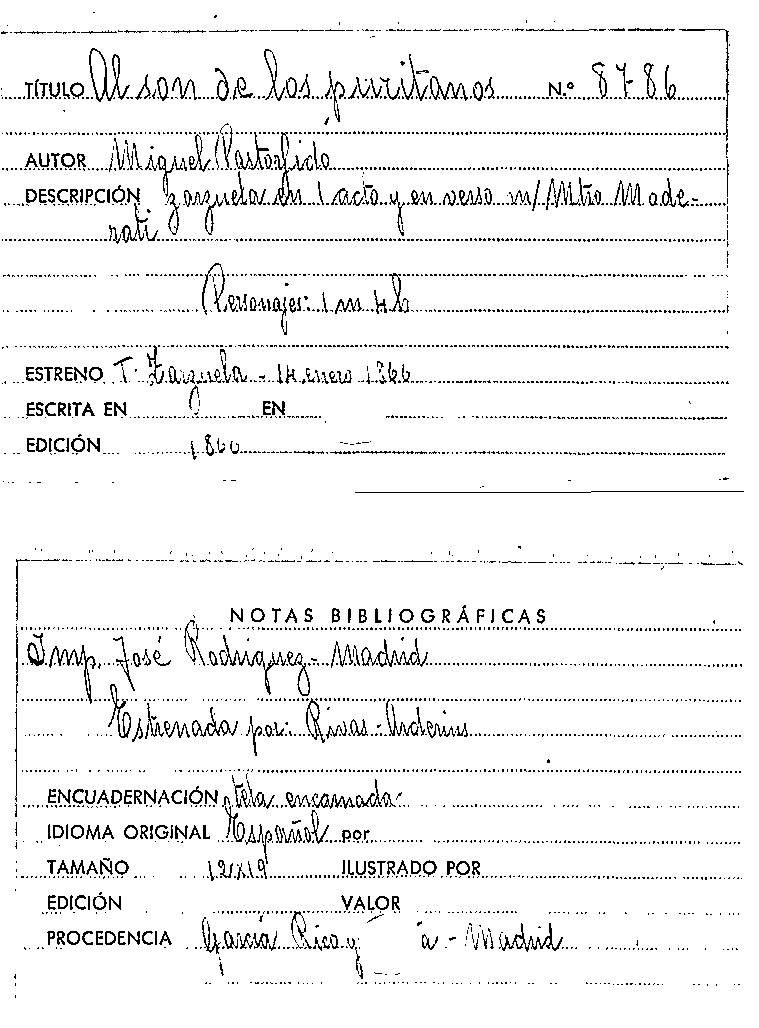 TÍTULO Al son de los puritanos N.º 87-86
AUTOR Miguel Pastorfido
DESCRIPCIÓN Zarzuela en 1 acto y en verso m/ Mtro Made-
rati
Personajes: 1 m 4 h
ESTRENO T. Zarzuela - 14 enero 1866
ESCRITA EN EN
EDICIÓN 1866
NOTAS BIBLIOGRÁFICAS
Imp. José Rodriguez - Madrid
Estrenada por: Rivas - Arderius
ENCUADERNACIÓN tela encarnada
IDIOMA ORIGINAL Español por
TAMAÑO 12x19 ILUSTRADO POR
EDICIÓN VALOR
PROCEDENCIA García Rico y a - Madrid